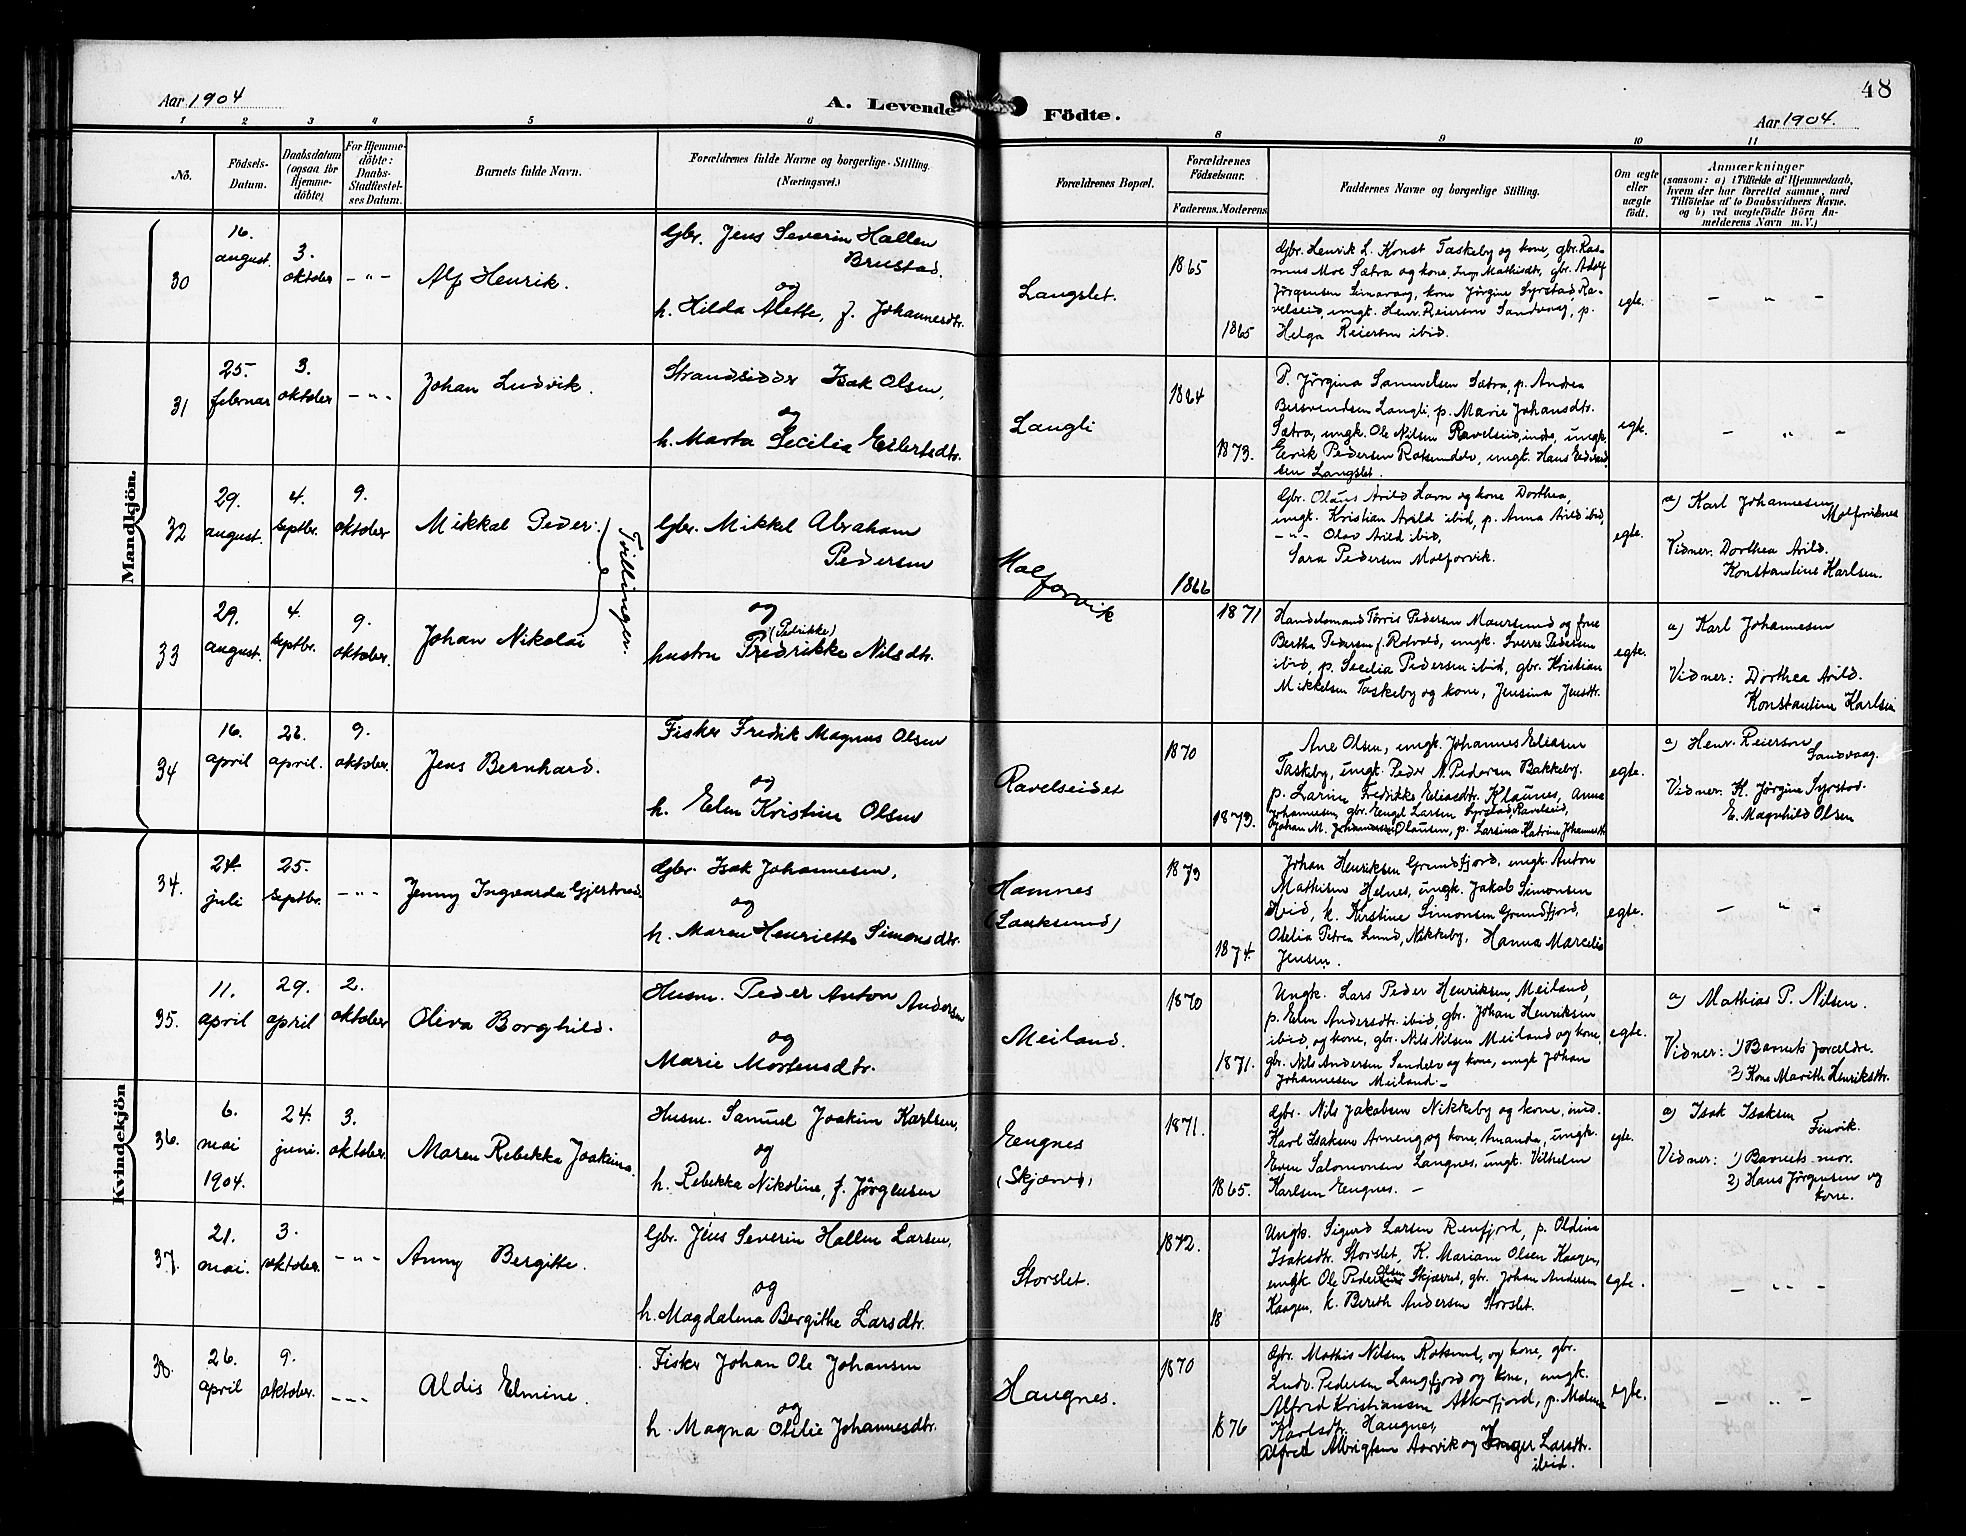 Aar 1904
A. Levende Födte.
48
Aar 1904.
1 2 3 4 5 6 8 9 10 11
No.
Födsels-Datum.
Daabsdatum (ogsaa for Hjemme-döbte)
For Hjemme-döbte: Daabs-Stadfæstel-ses Datum.
Barnets fulde Navn.
Forældrenes fulde Navne og borgerlige Stilling.
(Næringsvei.)
Forældrenes Bopæl.
Forældrenes Födselsaar.
Faderens. Moderens.
Faddernes Navne og borgerlige Stilling.
Om ægte eller uægte født.
Anmærkninger
(saasom: a) i Tilfælde af Hjemmedaab,
hvem der har forrettet samme, med
Tilføielse af to Daabsvidners Navne.
og b) ved uægtefödte Börn An-
melderens Navn m. V.)
Mandkjön.
30
16. august.
3. oktober
- " -
Alf Henrik.
Gbr. Jens Severin Hallen
Brustad.
og
h. Hilda Alette, f. Johannesdtr.
Langslet.
1865
1865
Gbr. Henrik L. Konst Taskeby og kone, gbr. Ras-
mus Moe Sætra og kone, Mathisdtr., gbr. Adolf
Jørgensen Simavaag, kone Jørgine Syrstad, Ra-
velseid, ungk. Henr. Reiersen Sandvaag, p.
Helga Reiersen ibid.
egte.
- " -
31
25. februar
3. oktober
- " -
Johan Ludvik.
Strandsidder Isak Olsen,
og
h. Marta Secilia Eilertsdtr.
Langli
1864
1873.
P. Jörgina Samuelsen Sætra, p. Andrea
Bersvendsen Langli, p. Marie Johansdtr.
Sætra, ungk. Ole Nilsen Ravelseid, inds, ungk.
Erik Pedersen Rotsundelv, ungk. Hans
sen Langslet.
egt.
- " -
32
29. august.
4. septbr.
9. oktober
Mikkal Peder.
Tvillinger.
Gbr. Mikkel Abraham
Pedersen
Molforvik
1866
Gbr. Olaus Arild Havn og kone Dorthea,
ungk. Kristian Arild ibid, p. Anna Arild ibid,
- " - Olav Arild ibid,
Sara Pedersen Molforvik.
egte.
a) Karl Johannesen
Molforviknes
Vidner: Dorthea Arild.
Konstantine Karlsen.
33
29. august.
4. septbr.
9. oktober.
Johan Nikolai
og
(Petrikke)
hustru Fredrikke Nilsdtr.
1871
Handelsmand Törris Pedersen Maursund og frue
Bertha Pedersen f. Rotvold, ungk. Sverre Pedersen
ibid, p. Secilia Pedersen ibid, gbr. Kristian
Mikkelsen Taskeby og kone, Jensina Jensdtr.
egte.
a) Karl Johannesen
Vidner: Dorthea Arild.
Konstantine Karlsen
34
16. april
22. april.
9. oktober.
Jens Bernhard.
Fisker Fredik Magnus Olsen
og
h. Elen Kristine Olsen
Ravelseidet
1870
1873.
Ane Olsen, ungk. Johannes Eliasen
Taskeby, ungk. Peder N. Pedersen Bakkeby.
p. Larine Fredrikke Eliasdtr. Klaunes, Anna
Johannesen, gbr. Engel Larsen Syrstad, Ravelseid,
Johan M. Johannessen Olausen, p. Larsina Katrine Johannesdtr
egte.
a) Henr. Reiersen
Sandvaag.
Vidner. K. Jörgine Syrstad.
E. Magnhild Olsen
Kvindekjön
34.
24. juli
25. septbr.
- " -
Jenny Ingvarda Gjertrud.
Gbr. Isak Johannesen,
og
h. Maren Henriette Simonsdtr.
Hamnes
(Lauksund)
1873
1874.
Johan Henriksen Grundfjord, ungk. Anton
Mathisen Helnes, ungk. Jakob Simonsen
ibid, k. Kirstine Simonsen Grundfjord,
Otelia Petrea Lund, Nikkeby, Hanna Marcelie
Jensen.
egte.
- " -
35.
11. april
29. april
2. oktober
Oliva Borghild.
Husm. Peder Anton Andersen
og
Marie Mortensdtr.
Meiland.
1870
1871.
Ungk. Lars Peder Henriksen, Meiland,
p. Elen Andersdtr. ibid, gbr. Johan Henriksen
ibid, og kone, gbr. Nils Nilsen Meiland og kone,
gbr. Nils Andersen Sandelv og kone, ungk Johan
Johannesen Meiland. -
egte.
a) Mathias P. Nilsen.
Vidner: 1) Barnets forældre.
2) Kone Marith Henriksdtr.
36.
6. mai 1904.
24. juni.
3. oktober.
Maren Rebekka Joakima.
Husm. Samuel Joakim Karlsen,
og
h. Rebekka Nikoline, f. Jörgensen
Engnes
(Skjærvö)
1871.
1865.
Gbr. Nils Jakobsen Nikkeby og kone, ind.
Karl Isaksen Arneng og kone, Amanda, ungk.
Even Salomonsen Langnes, ungk. Vilhelm
Karlsen Engnes. -
egte.
a) Isak Isaksen
Finvik.
Vidner: 1) Barnets mor.
2) Hans Jörgensen og
kone.
37.
21. mai.
3. oktober.
- " -
Anny Bergitte.
Gbr. Jens Severin Hallen Larsen,
og
h. Magdalena Bergithe Larsdtr.
Storslet.
1872.
18
Ungk. Sigurd Larsen Reinfjord, p. Oldina
Isaksdtr. Storslet, K. Mariam Olsen Kaagen,
ungk Ole Pedersen Olsen Skjærvö, gbr. Johan Andersen
Kaagen, k. Bereth Andersen Storslet.
egte.
- " -
38.
26. april
9. oktober.
- " -
Aldis Elmine.
Fisker Johan Ole Johansen
og
h. Magna Otilie Johannesdtr.
Haugnes.
1870
1876
Gbr. Mathis Nilsen Rotsund, og kone, gbr.
Ludv. Pedersen Langfjord og kone, ungk.
Alfred Kristiansen Akkarfjord, p. Malene
Karlsdtr. Haugnes,
Alfred Albrigtsen Aarvik og Inger Larsdtr.
ibid.
egte.
- " -